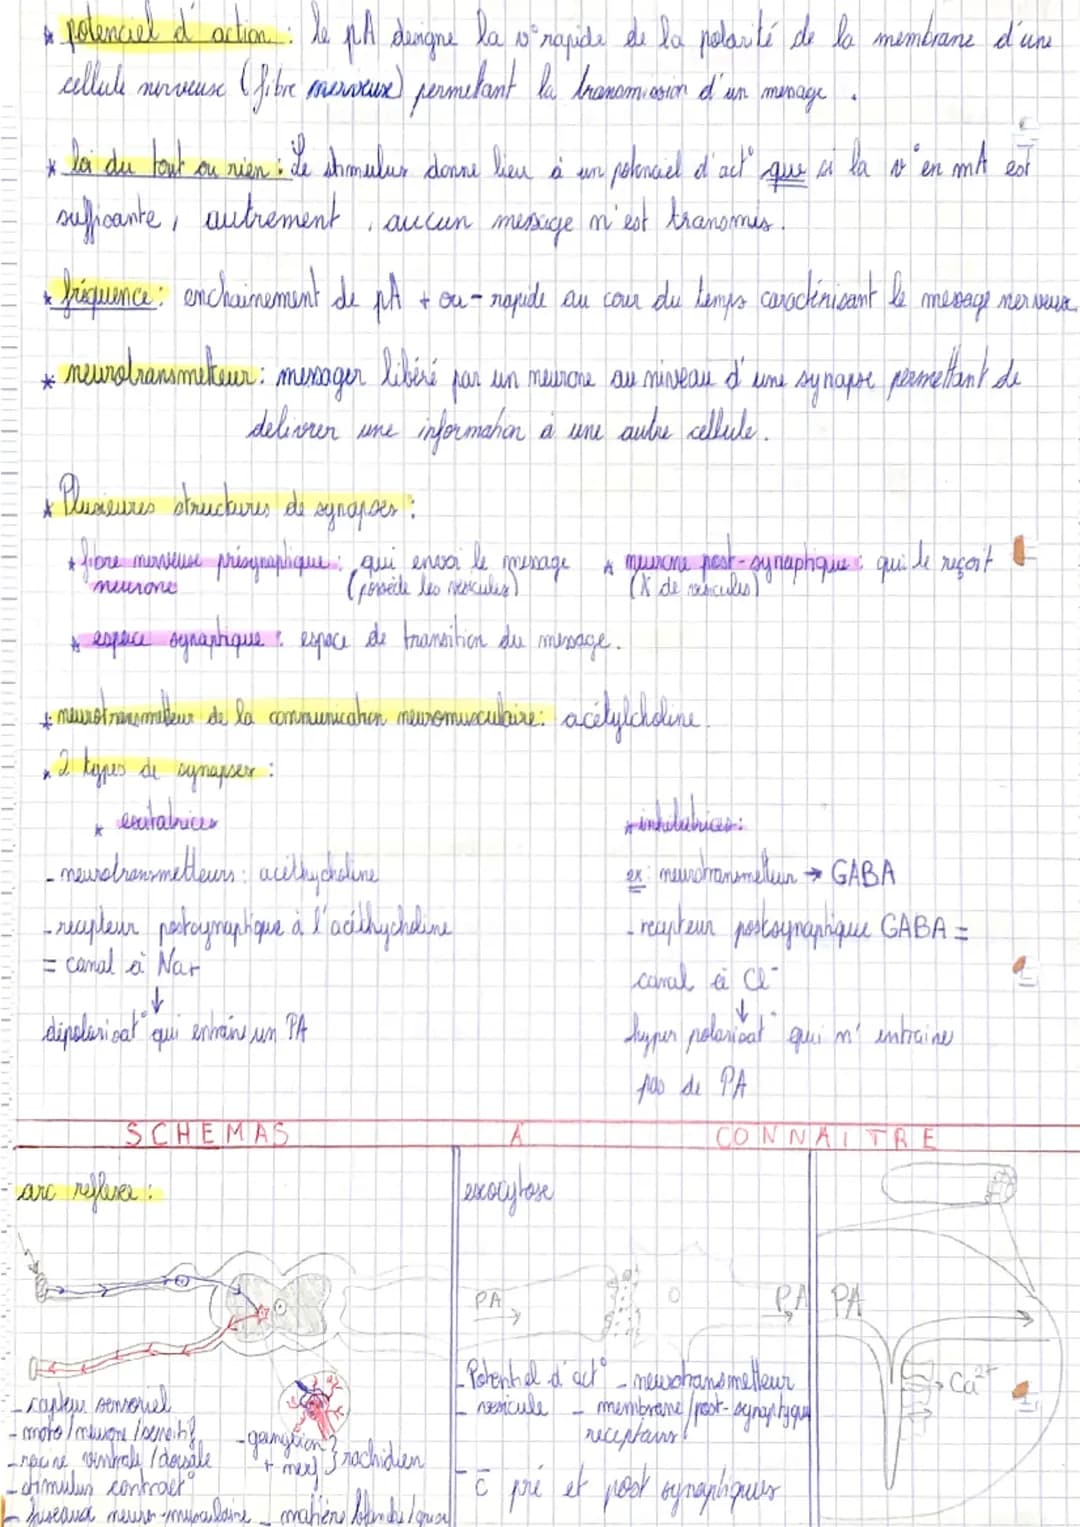 * potenciel d'action : le pA designe la v° rapide de la polarité de la membrane d'une
cellule nerveuse (fibre nerveuse) permetant la transmission d'un message .
* loi du tout ou rien : Le stimulus donne lieu à un potenciel d'act° que si la v° en mA est
suffisante, autrement, aucun message n'est transmis.
* fréquence : enchainement de pA + ou - rapide au cour du temps caractérisant le message nerveux
* neurotransmetteur : messager libéré par un neurone au niveau d'une synapse permettant de
delivrer une information à une autre cellule.
* Plusieures structures de synapses :
* fibre nerveuse présynaptique : qui envoi le message * neurone post-synaptique : qui le reçoit
neurone (possède les vésicules) (X de vésicules)
* espace synaptique : espace de transition du message.
* neurotransmetteur de la communication neuromusculaire : acétylcholine.
* 2 types de synapses :
* exitatrices * inhibitrices :
- neurotransmetteurs : acéthycholine ex : neurotransmetteur → GABA
- recepteur postsynaptique à l'acéthycholine - recepteur postsynaptique GABA =
= canal à Na+ canal à Cl-
↓ ↓
dépolarisat° qui entraine un PA hyper polarisat° qui n'entraine
pas de PA
SCHEMAS A CONNAITRE
arc reflexe :
- capteur sensoriel
- moto/neurone/sensitif
- racine ventrale/dorsale
- stimulus contract°
- fuseaux neuro-musculaire - matière blanche/grise
- ganglion } rachidien
+ nerf
exocytose
PA PA
- Potentiel d'act° - neurotransmetteur
- vésicule - membrane/post-synaptique
recepteurs
- c̄ pré et post synaptiques
PA
Ca2+